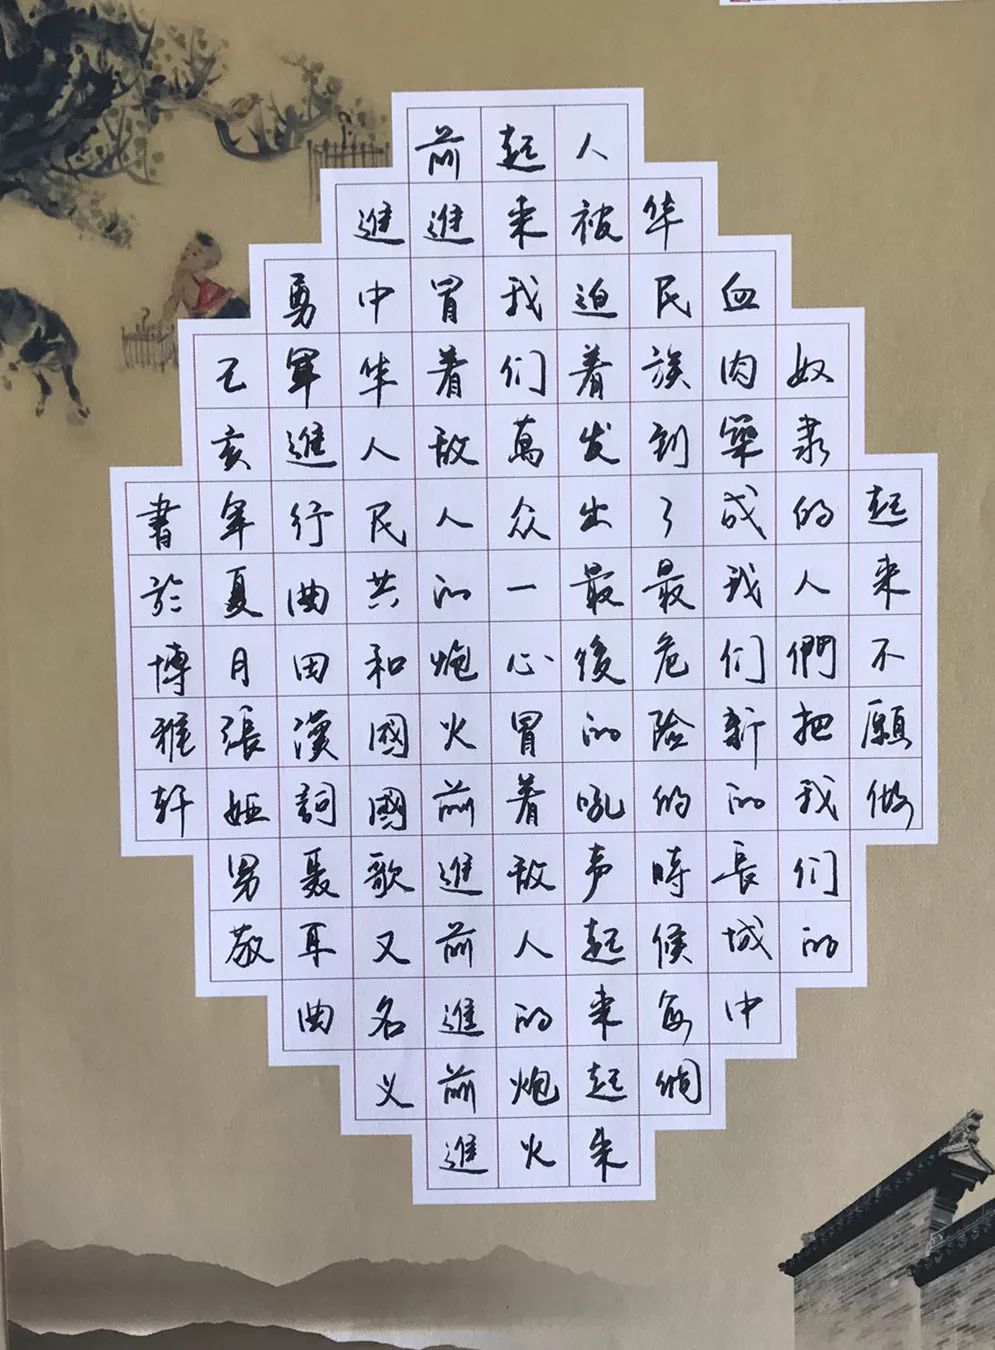 起来不願做
奴隶的人們把我们的
血肉築成我们新的長城中
华民族到了最危险的時候每個
人被迫着发出最後的吼声起来起来
起来我们萬众一心冒着敌人的炮火
前進冒着敌人的炮火前進前進前進
進中华人民共和國國歌又名义
勇軍進行曲田漢詞聂耳曲
己亥年夏月張娅男敬
書於博雅轩